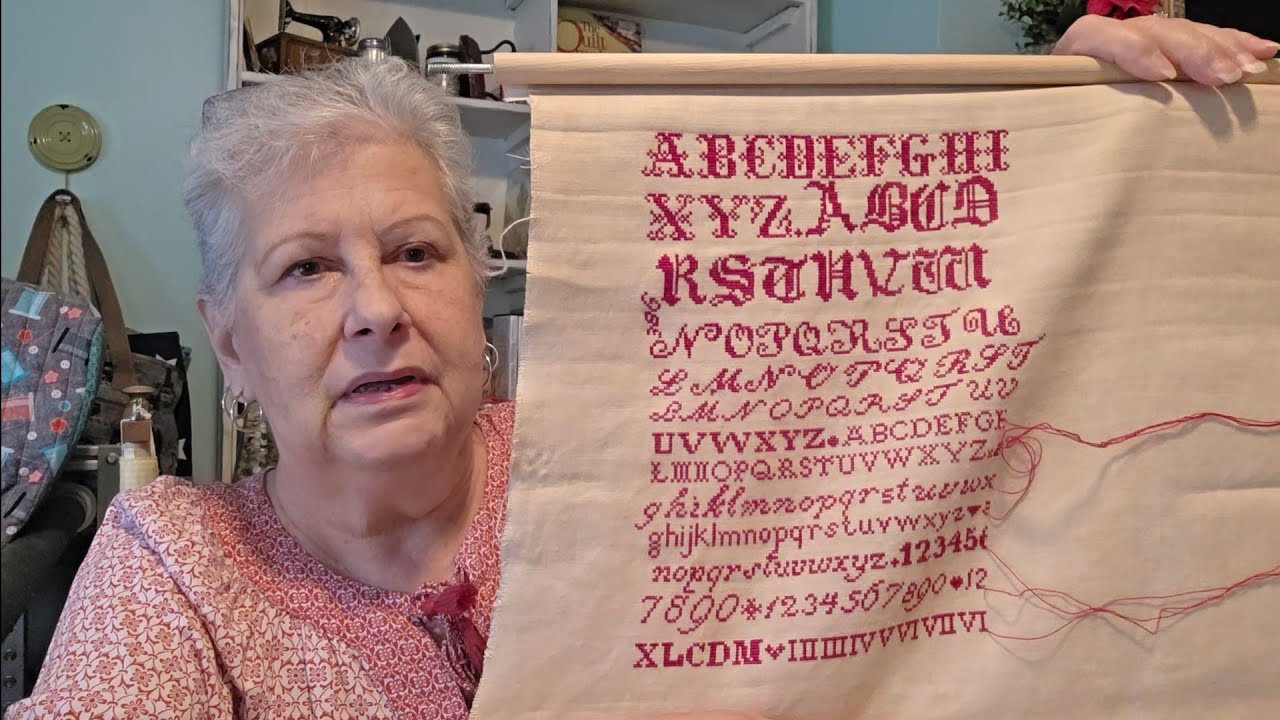 The Quilt
ABCDEFGHI
XYZ.ABCD
RSTUVW
NOPQRST
LMNOPQRST
LMNOPQRSTUV
UVWXYZ.ABCDEFGH
LMNOPQRSTUVWXYZ
ghiklmnopqrstuvwx
ghijklmnopqrstuvwxyz♥a
nopqrstuvwxyz.123456
7890*1234567890♥12
XLCDM♥IIIIIIIVVVIVIIVI